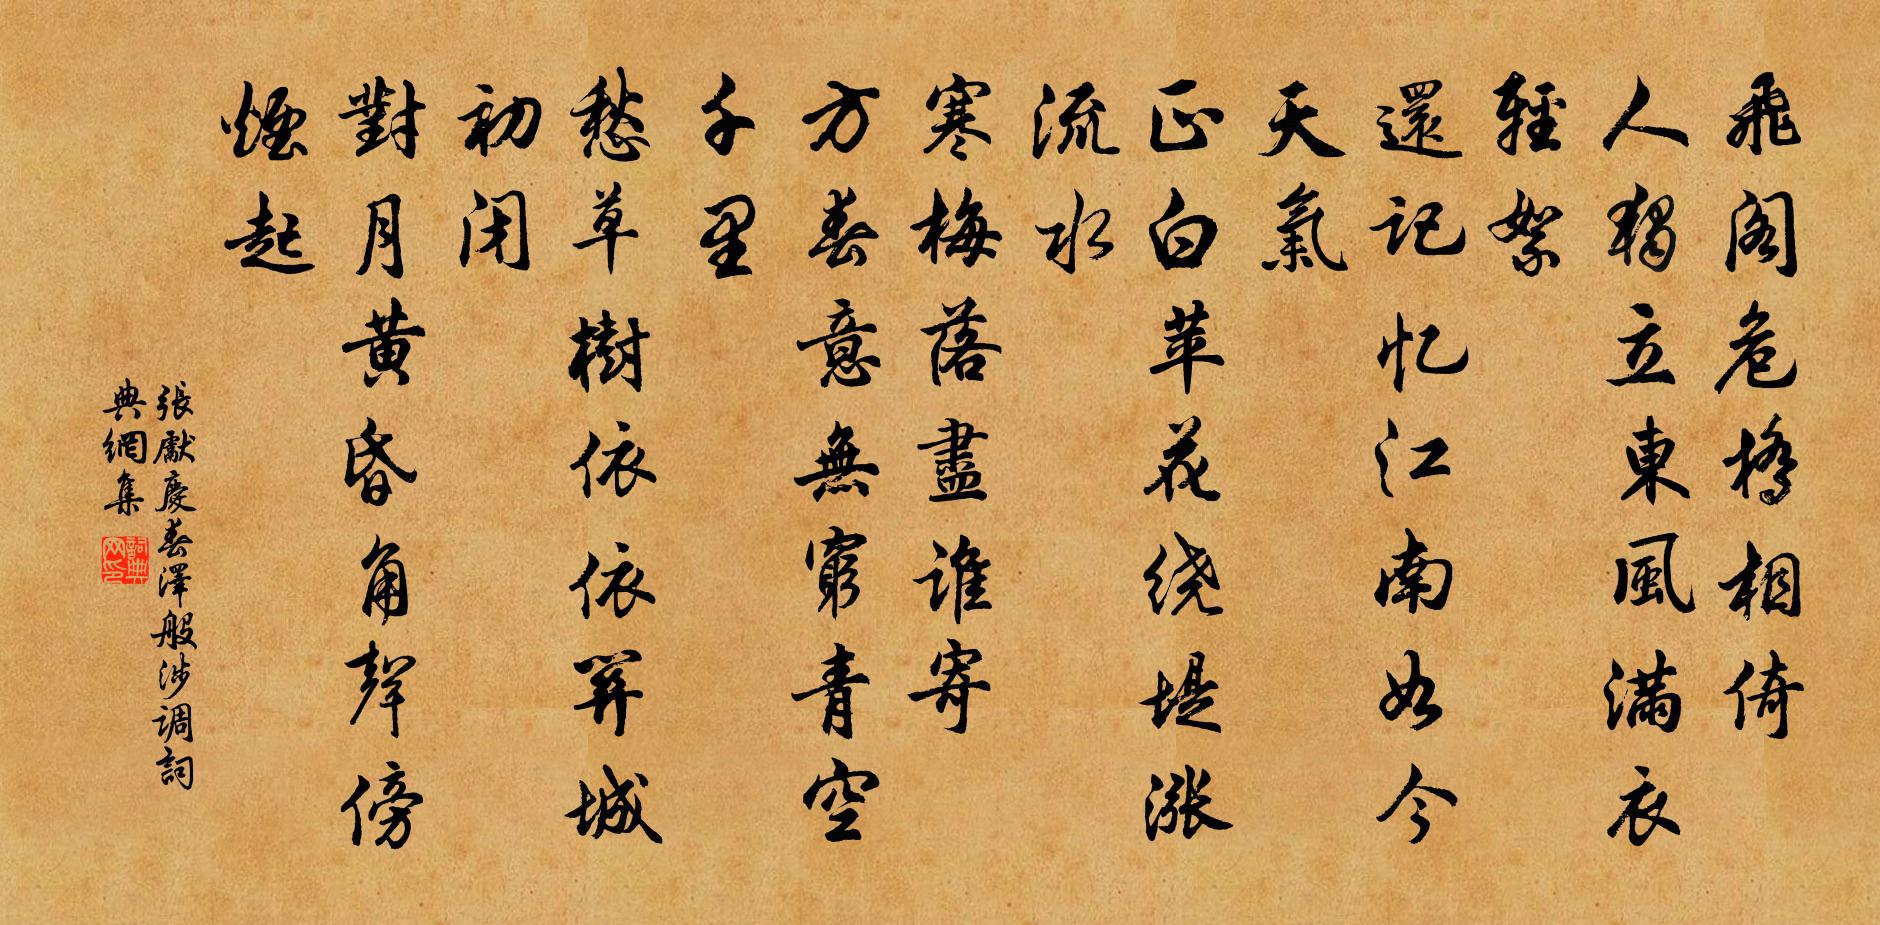 飛閣危橋相倚
人獨立東風滿衣
輕絮
還記忆江南如今
天氣
正白苹花绕堤漲
流水
寒梅落盡谁寄
方春意無窮青空
千里
愁草樹依依關城
初閉
對月黄昏角聲傍
煙起
張獻慶春澤般涉调詞
典網集
詞典网印